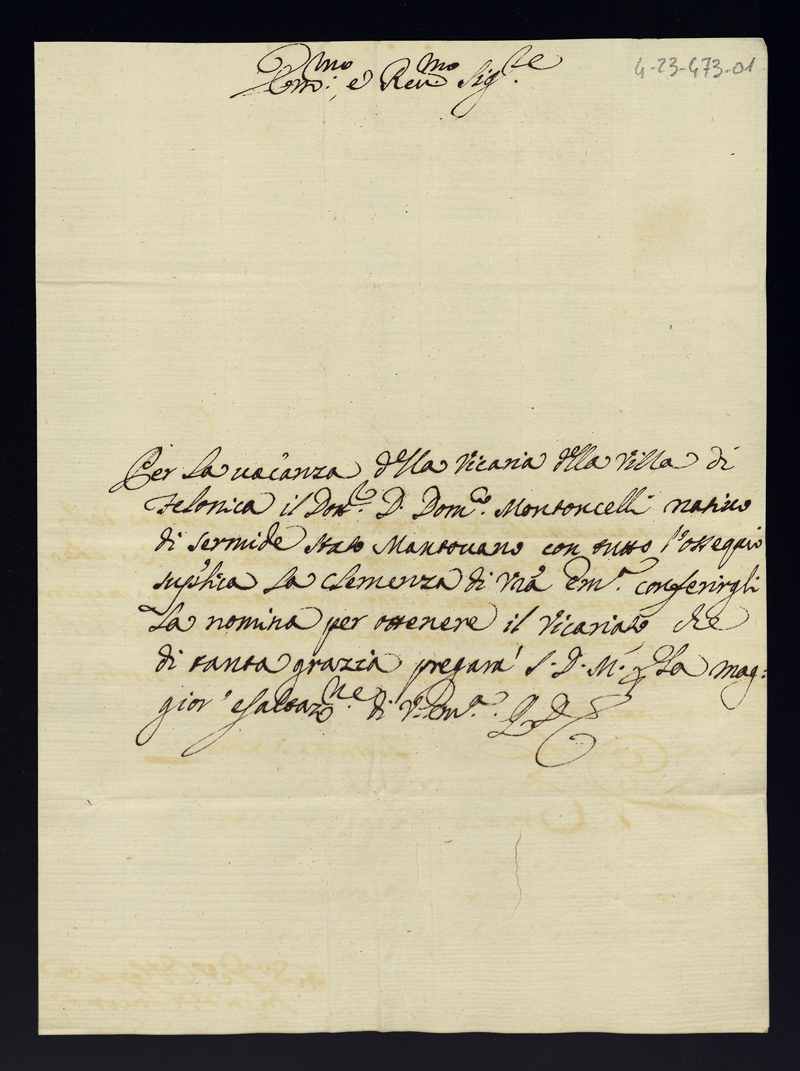 4-23-473-01
Em.mo e Rev.mo Sig.re
Per la vacanza della Vicaria della Villa di
Felonica il Dott.r D. Dom.co Montoncelli nativo
di Sermide Stato Mantovano con tutto l'ossequio
suplica la clemenza di Vra Em.a conferirgli
la nomina per ottenere il Vicariato che
di tanta grazia pregara' S. D. M. per la mag:
gior' esaltaz.ne di V. Em.a.